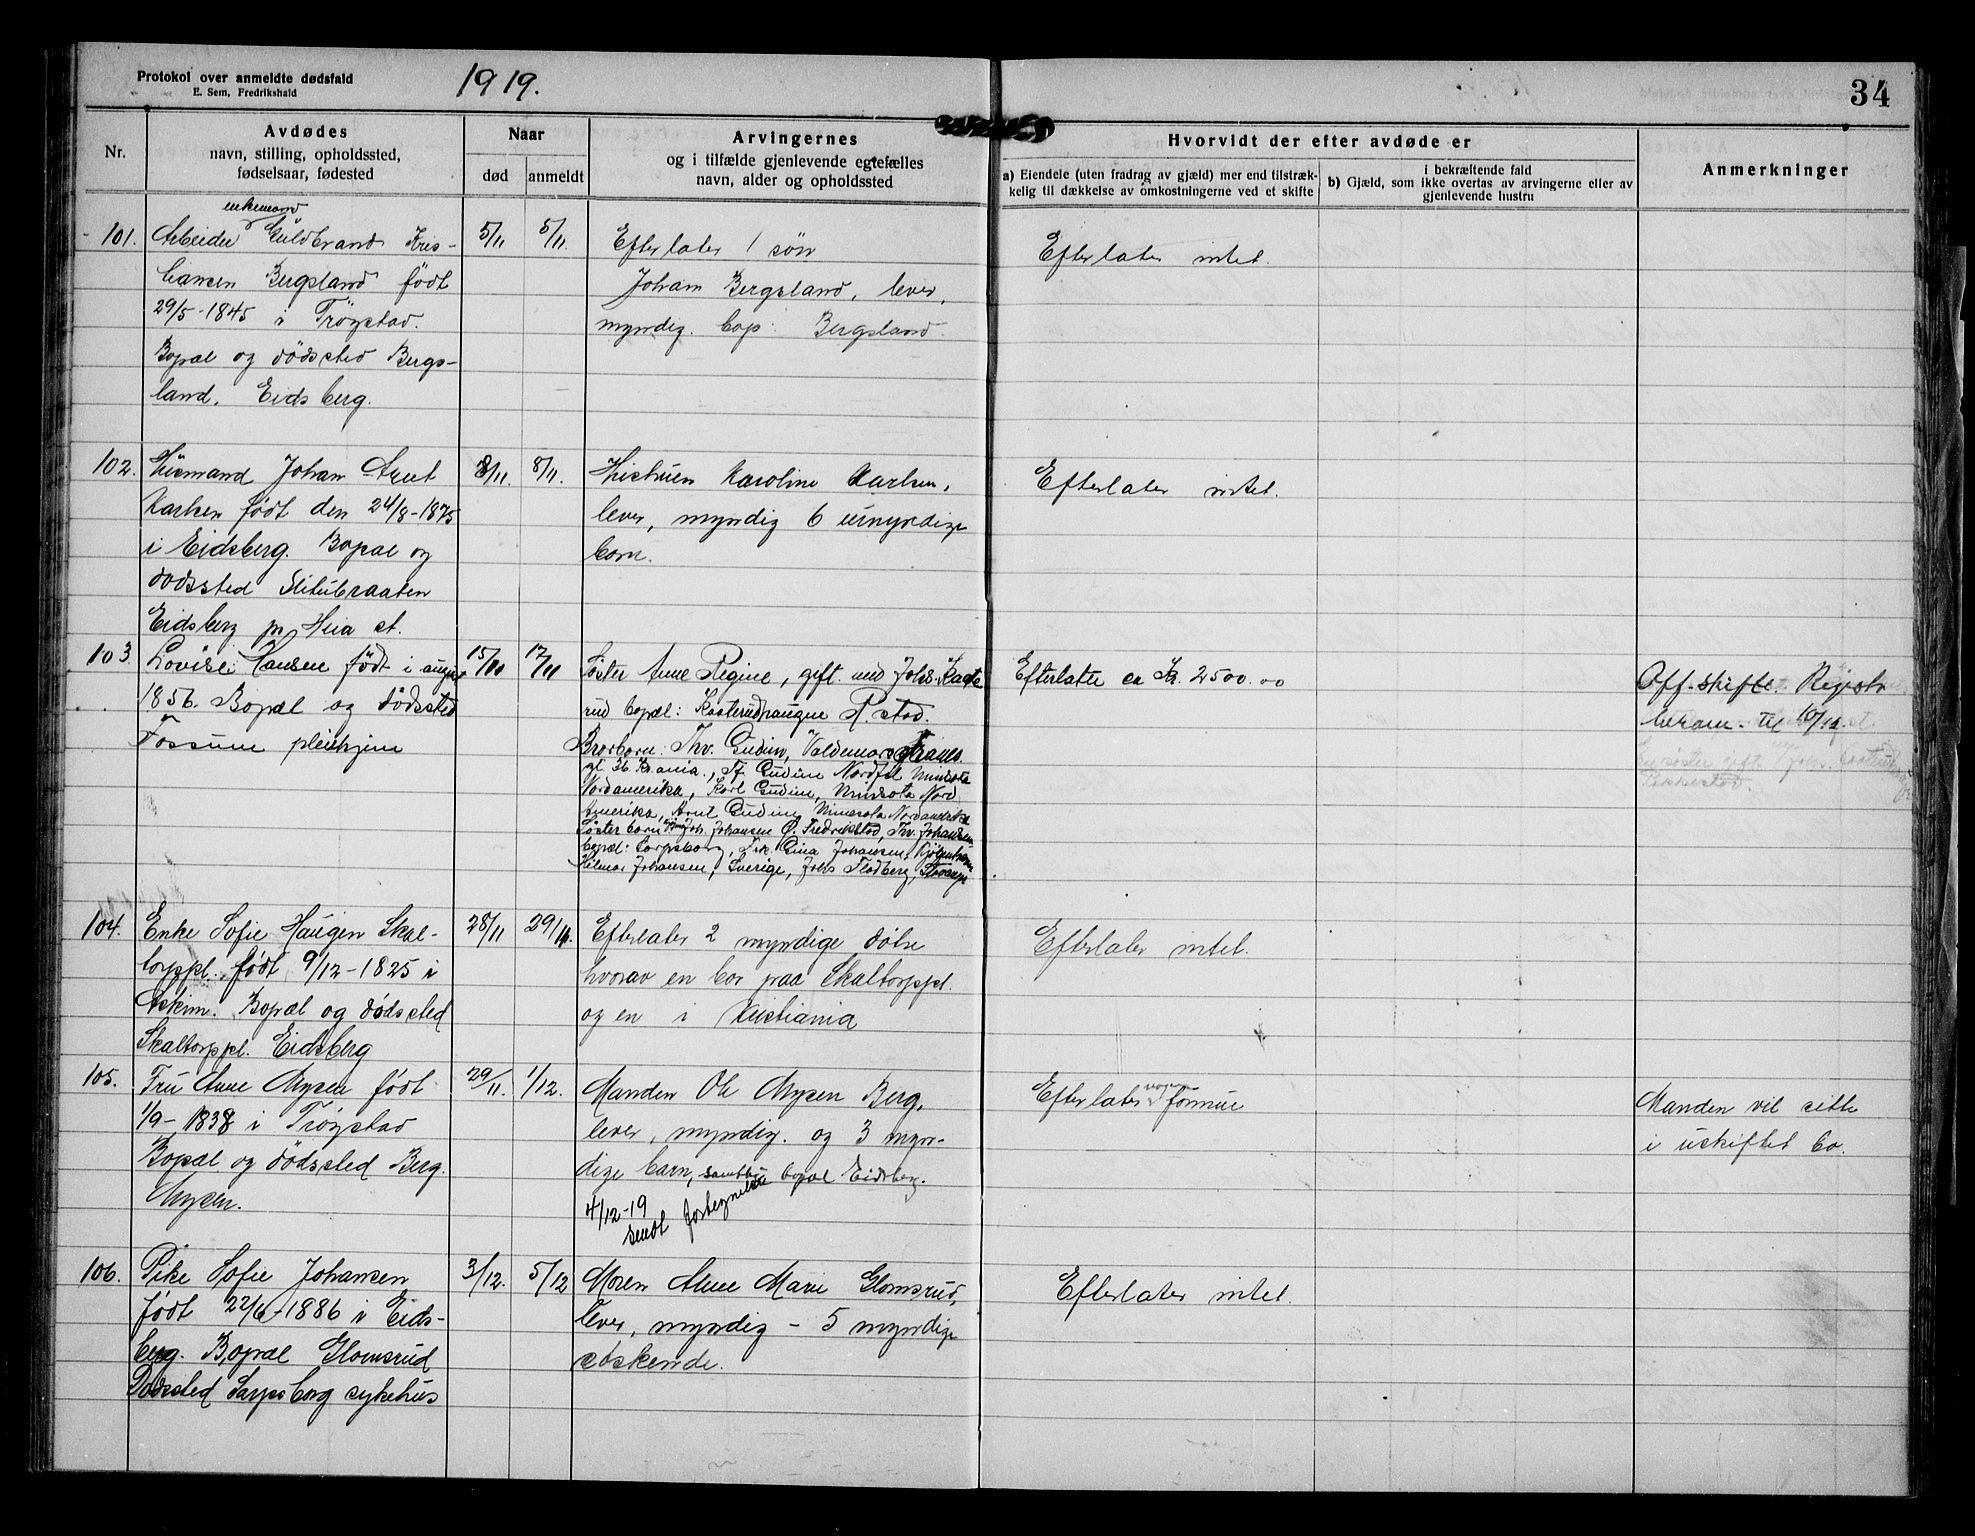 Protokol over anmeldte dødsfald
E. Sem, Fredrikshald
1919.
34
Nr.
Avdødes
navn, stilling, opholdssted,
fødselsaar, fødested
Naar
død
anmeldt
Arvingernes
og i tilfælde gjenlevende egtefælles
navn, alder og opholdssted
Hvorvidt der efter avdøde er
a) Eiendele (uten fradrag av gjæld) mer end tilstræk-
kelig til dækkelse av omkostningerne ved et skifte
i bekræftende fald
b) Gjæld, som ikke overtas av arvingerne eller av
gjenlevende hustru
Anmerkninger
101.
enkemand
Arbeider Guldbrand Kris-
tiansen Bergsland født
29/5-1845 i Trøgstad.
Bopæl og dødssted Bergs-
land. Eidsberg.
5/11
5/11.
Efterlater 1 søn
Johan Bergsland, lever,
myndig. bop: Bergsland.
Efterlater intet.
102.
Husmand Johan Arnt
Karlsen født den 24/8-1875
i Eidsberg. Bopæl og
dødssted Slitubraaten
Eidsberg pr Heia st.
8/11.
8/11.
Hustruen Karoline Karlsen,
lever, myndig 6 umyndige
barn.
Efterlater intet.
103.
Lovise Hansen født i august
1856. Bopæl og dødssted
Fossum pleiehjem
15/11
17/11
Søster Anne Regine, gift med Johs. Kaste
rud bopæl: Kasterudhaugen R.stad.
Brorbarn: Thv. Gudim, Valdemar Thranes
gt 36 Kr.ania., Tf Gudim Minesota
Nordamerika, Karl Gudim, Minesota Nord
Amerika, Arnt Gudim Minesota Nordamerika
Søsterbarn Joh. Johansen Ø. Fredrikstad, Thv. Johansen
bopæl: Sarpsborg, Frk Gina Johansen,
Hilmar Johansen, Sverige, Johs Flodberg,
Efterlatt ca Kr. 2500.00
Off. skifte. Registr
beram. til 10/12.
104.
Enke Sofie Haugen Skal-
torppl. født 9/12-1825 i
Askim. Bopæl og dødssted
Skaltorppl. Eidsberg
28/11
29/11.
Efterlater 2 myndige døtre
hvorav en bor paa Skaltorppl.
og en i Kristiania
Efterlater intet.
105.
Fru Anne Mysen født
1/9-1838 i Trøgstad
Bopæl og dødssted Berg.
Mysen.
29/11.
1/12.
Manden Ole Mysen Berg,
lever, myndig. og 3 myn-
dige barn, samtlige bopæl Eidsberg.
4/12-19
sendt fortegnelse
Efterlater nogen formue
Manden vil sitte
i uskiftet bo.
106.
Pike Sofie Johansen
født 22/6-1886 i Eids-
berg. Bopæl Glomsrud
Dødssted Sarpsborg sykehus
3/12.
5/12
Moren Anne Marie Glomsrud,
lever, myndig - 5 myndige
søskende.
Efterlater intet.